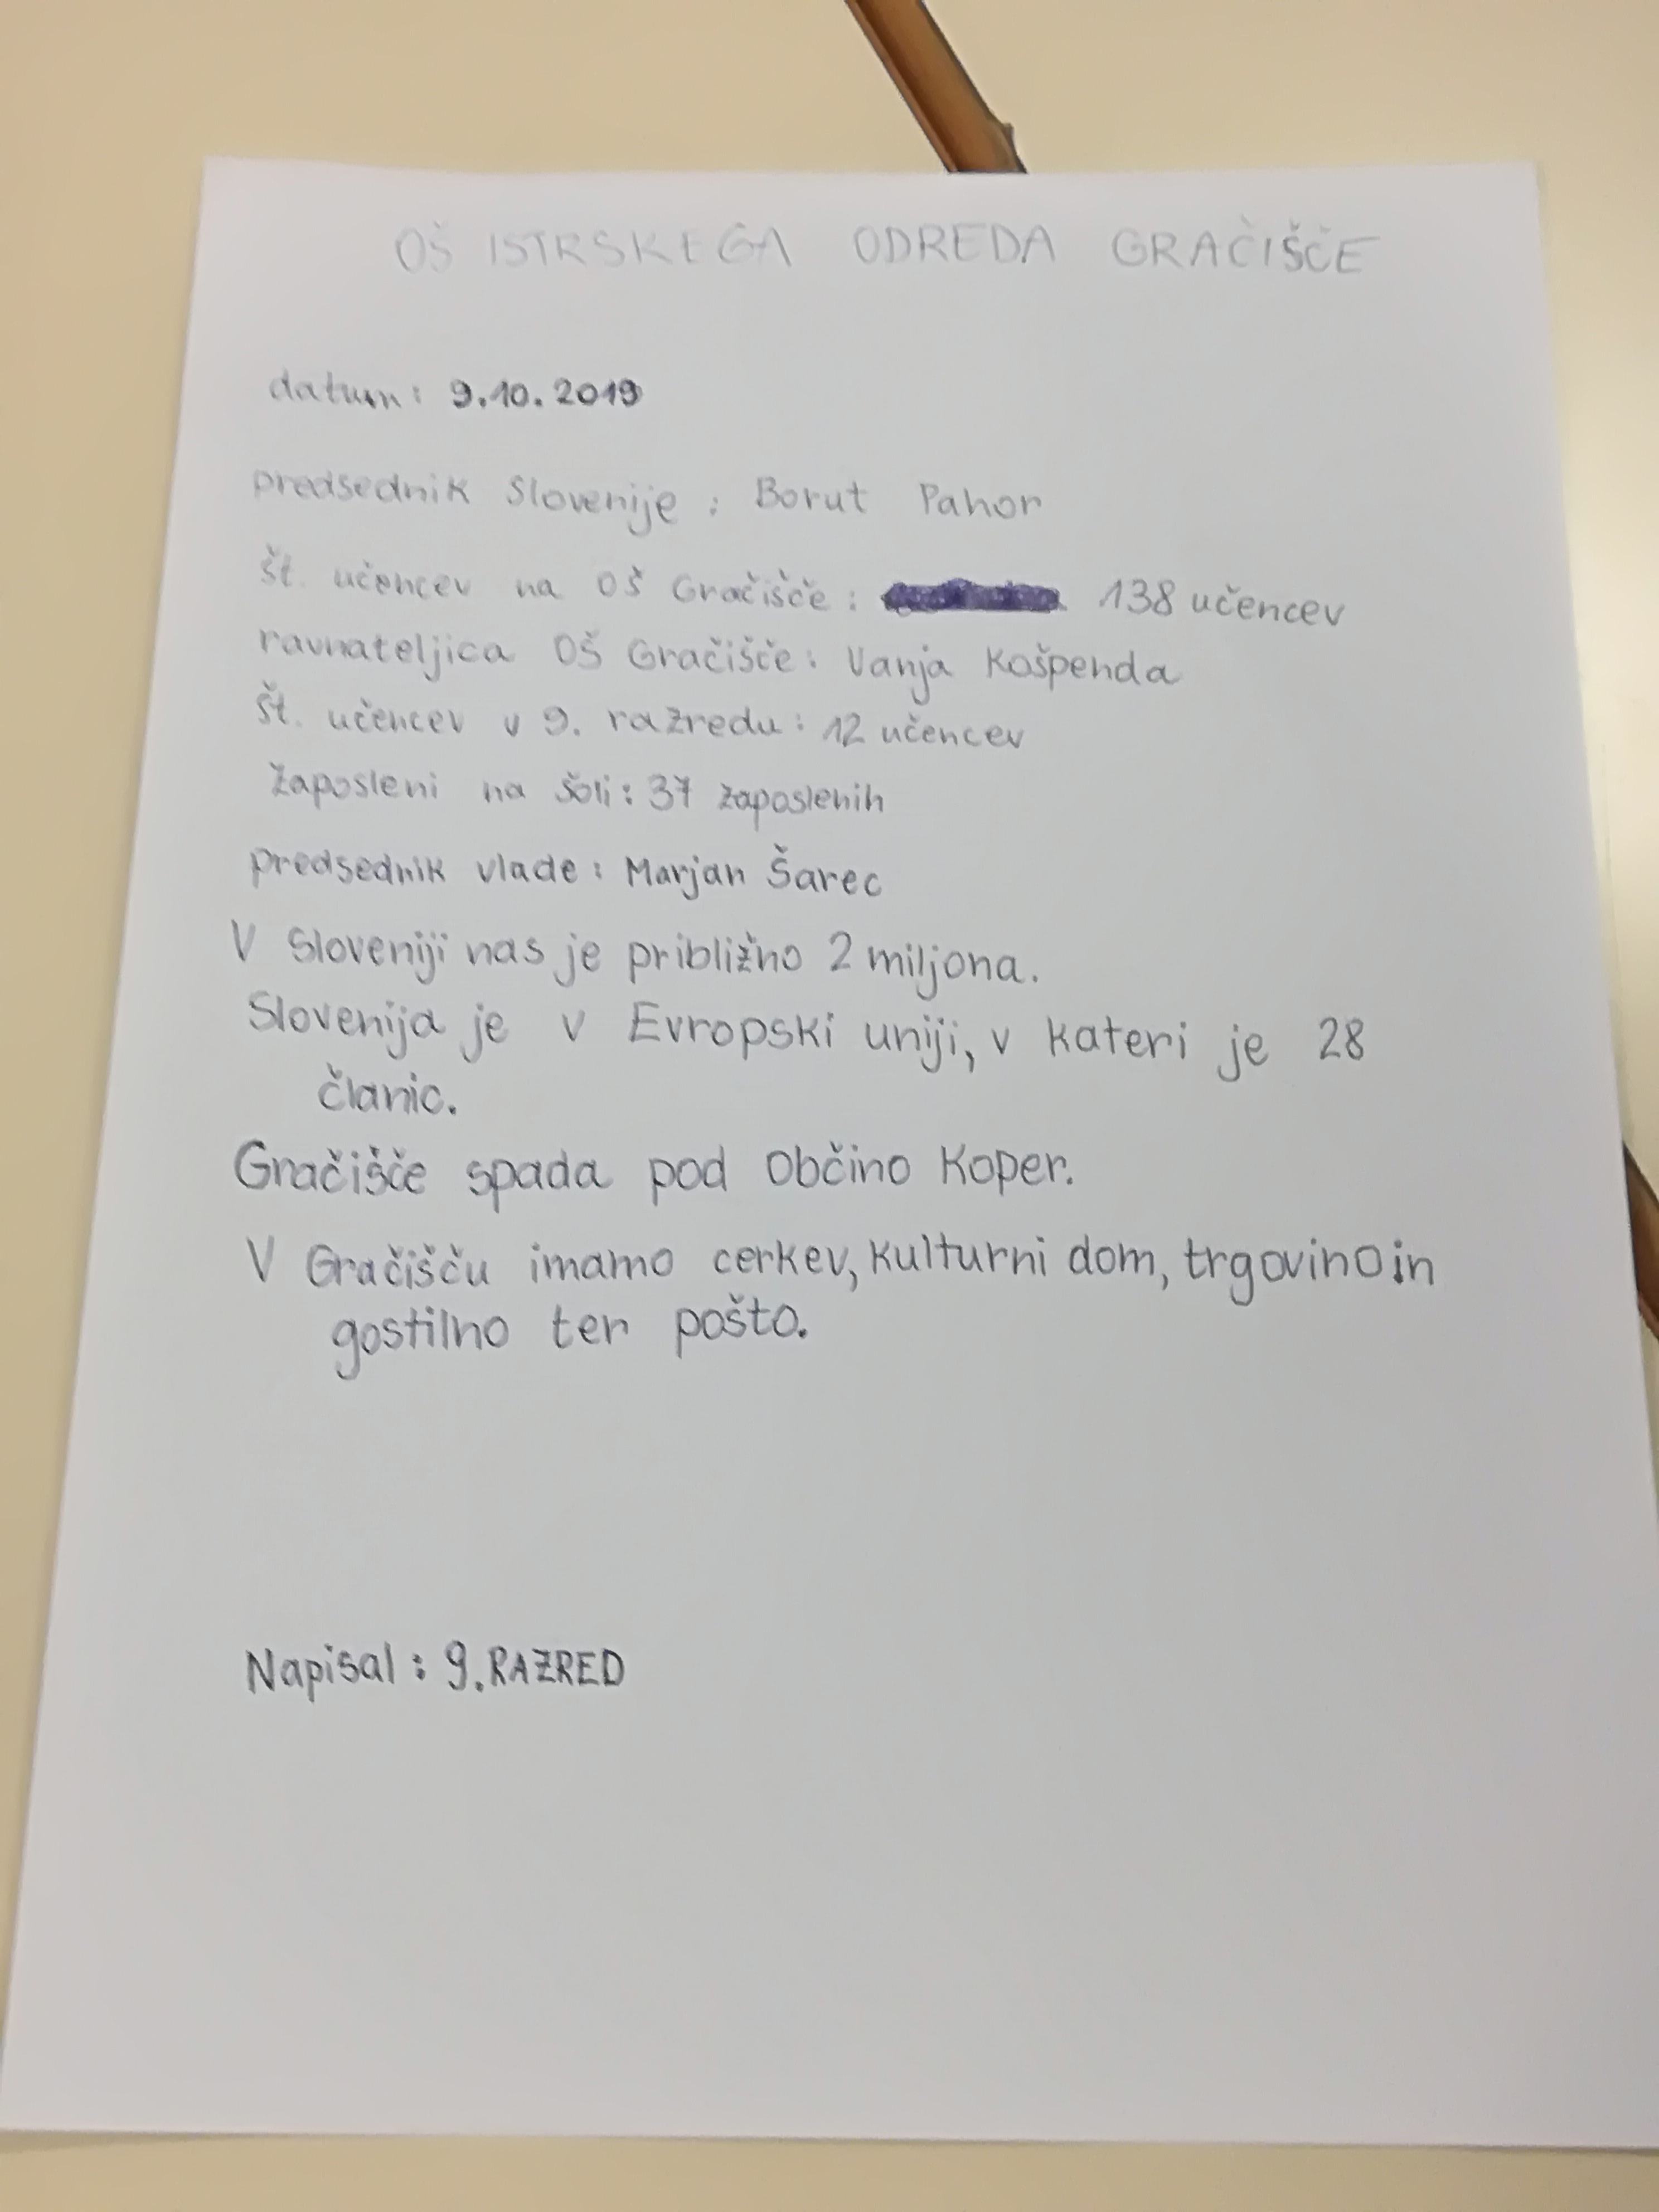 OŠ ISTRSKEGA ODREDA GRAČIŠČE
datum: 9.10.2019
predsednik Slovenije: Borut Pahor
št. učencev na OŠ Gračišče: 138 učencev
ravnateljica OŠ Gračišče: Vanja Košpenda
št. učencev v 9. razredu: 12 učencev
Zaposleni na šoli: 37 zaposlenih
predsednik vlade: Marjan Šarec
V Sloveniji nas je približno 2 miljona.
Slovenija je v Evropski uniji, v kateri je 28
članic.
Gračišče spada pod Občino Koper.
V Gračišču imamo cerkev, kulturni dom, trgovino in
gostilno ter pošto.
Napisal: 9. RAZRED